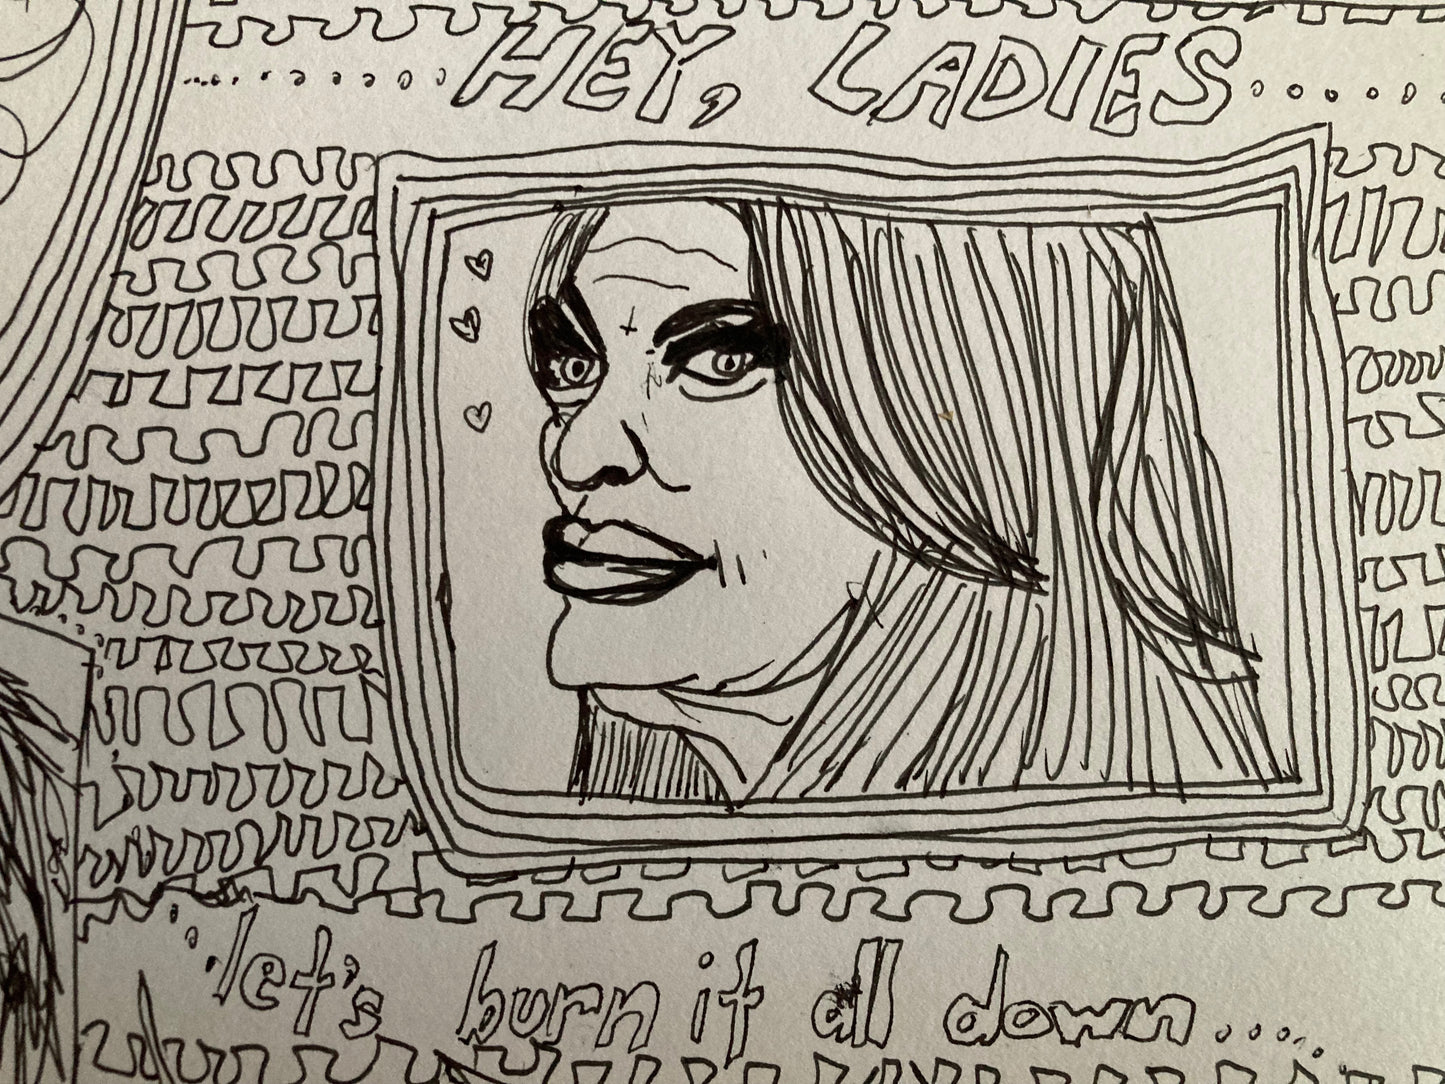 ........HEY, LADIES.......
..let's burn it all down.....